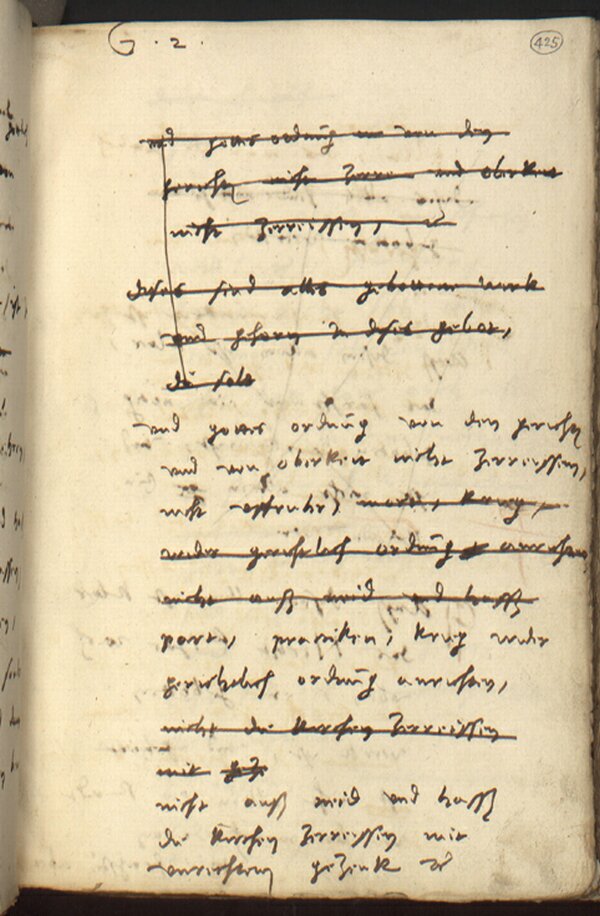 G . 2 .
425
und gottes ordnung von den
gericht nicht und oberkeit
nicht Zerreissen,
dises sind alles gebottene werk
und gehorn in dises gebot,
du solt
und gottes ordnung von den gericht
und von oberkeit nicht Zerreissen,
nicht auffruhr, mord, krieg,
wider gerichtlich ordnung anrichten
nicht auß neid und hass
parten, practiken, krieg wider
gerichtlich ordnung anrichten,
nicht die kirchen Zerreissen
mit
nicht auß neid und hass
die kirchen Zerreissen mit
unrechtem gezenk